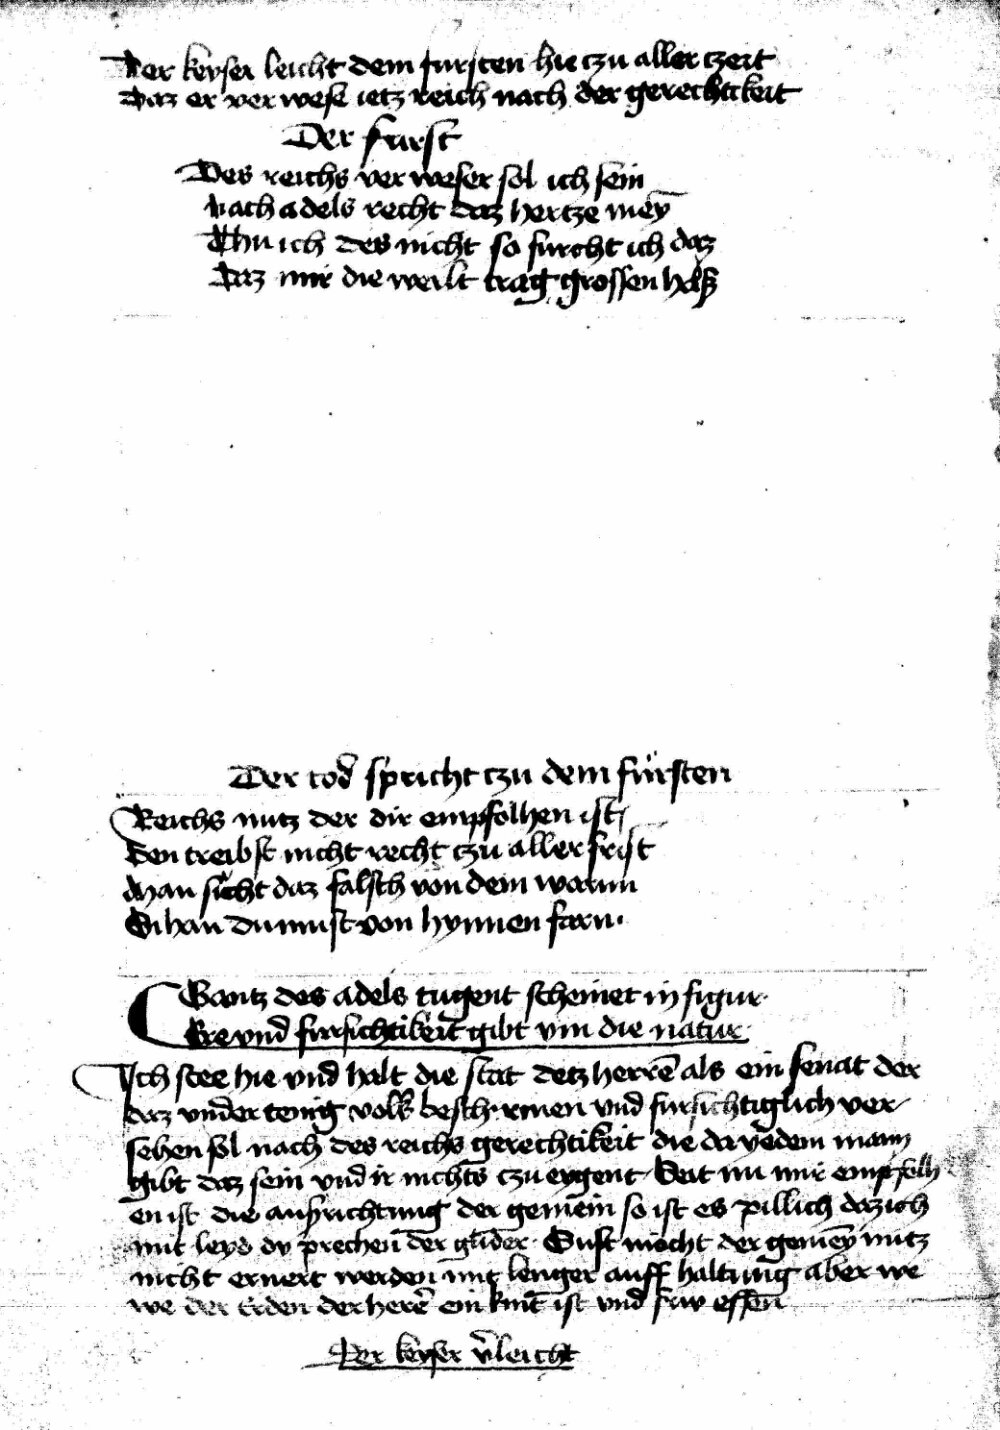 Der keyser leicht dem fursten hie czu aller czeit
Daz er verwese ietz reich nach der gerechtikeit
Der furst
Des reichs verweser sol ich sein
Nach adels recht daz hertze mey̅
Thu ich des nicht so furcht ich daz
Daz mir die werlt trag grossen haß
Der tod spricht czu dem fürsten
Reichs nutz der dir empfolhen ist
Den treibst nicht recht czu aller frist
Man sücht daz falsch von dem warnn
Sihan du must von hynnen farn
Gantz des adels tugent scheinet in figur
Ere vnd fursichtikeit gibt vm die natur
Ich stee hie vnd halt die stat detz herre̅ als ein senat der
daz vnder tenig volk beschirmen vnd fursichtiglich ver
sehen sol nach des reichs gerechtikeit die da yedem mann
gibt daz sein vnd ir nichts czu eygent Seit nu mir empfolh
en ist die ausrichtung der gemein so ist es pillich daz ich
mit leyd prechen der glider Sust möcht der gemey̅ nutz
nicht ernert werden mit lenger auff haltung aber we
we der Erden der here̅ ein kint ist vnd frw essen
Der keyser v̅leicht